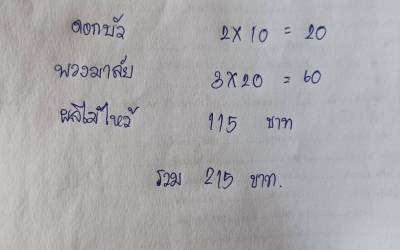 ดอกบัว 2 x 10 = 20
พวงมาลัย 3 x 20 = 60
ผลไม้ไหว้ 115 บาท
รวม 215 บาท.